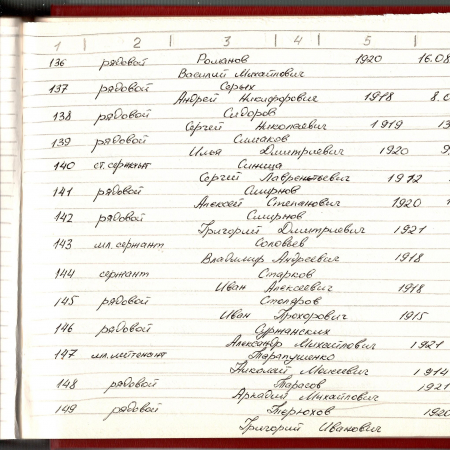 1 | 2 | 3 | 4 | 5 |
136 рядовой Романов 1920 16.08
Василий Михайлович
137 рядовой Серых
Андрей Никифорович 1918 8.0
138 рядовой Сидоров
Сергей Николаевич 1919 13
139 рядовой Симаков
Илья Дмитриевич 1920 9
140 ст. сержант Синица
Сергей Лаврентьевич 1912
141 рядовой Смирнов
Алексей Степанович 1920 1
142 рядовой Смирнов
Григорий Дмитриевич 1921
143 мл. сержант Соловьев
Владимир Андреевич 1918
144 сержант Старков
Иван Алексеевич 1918
145 рядовой Столяров
Иван Прохорович 1915
146 рядовой Суржанских
Александр Михайлович 1921
147 мл. лейтенант Тарапушенко
Николай Моисеевич 1914
148 рядовой Тарасов 1921
Аркадий Михайлович
149 рядовой Терюхов 1920
Григорий Иванович